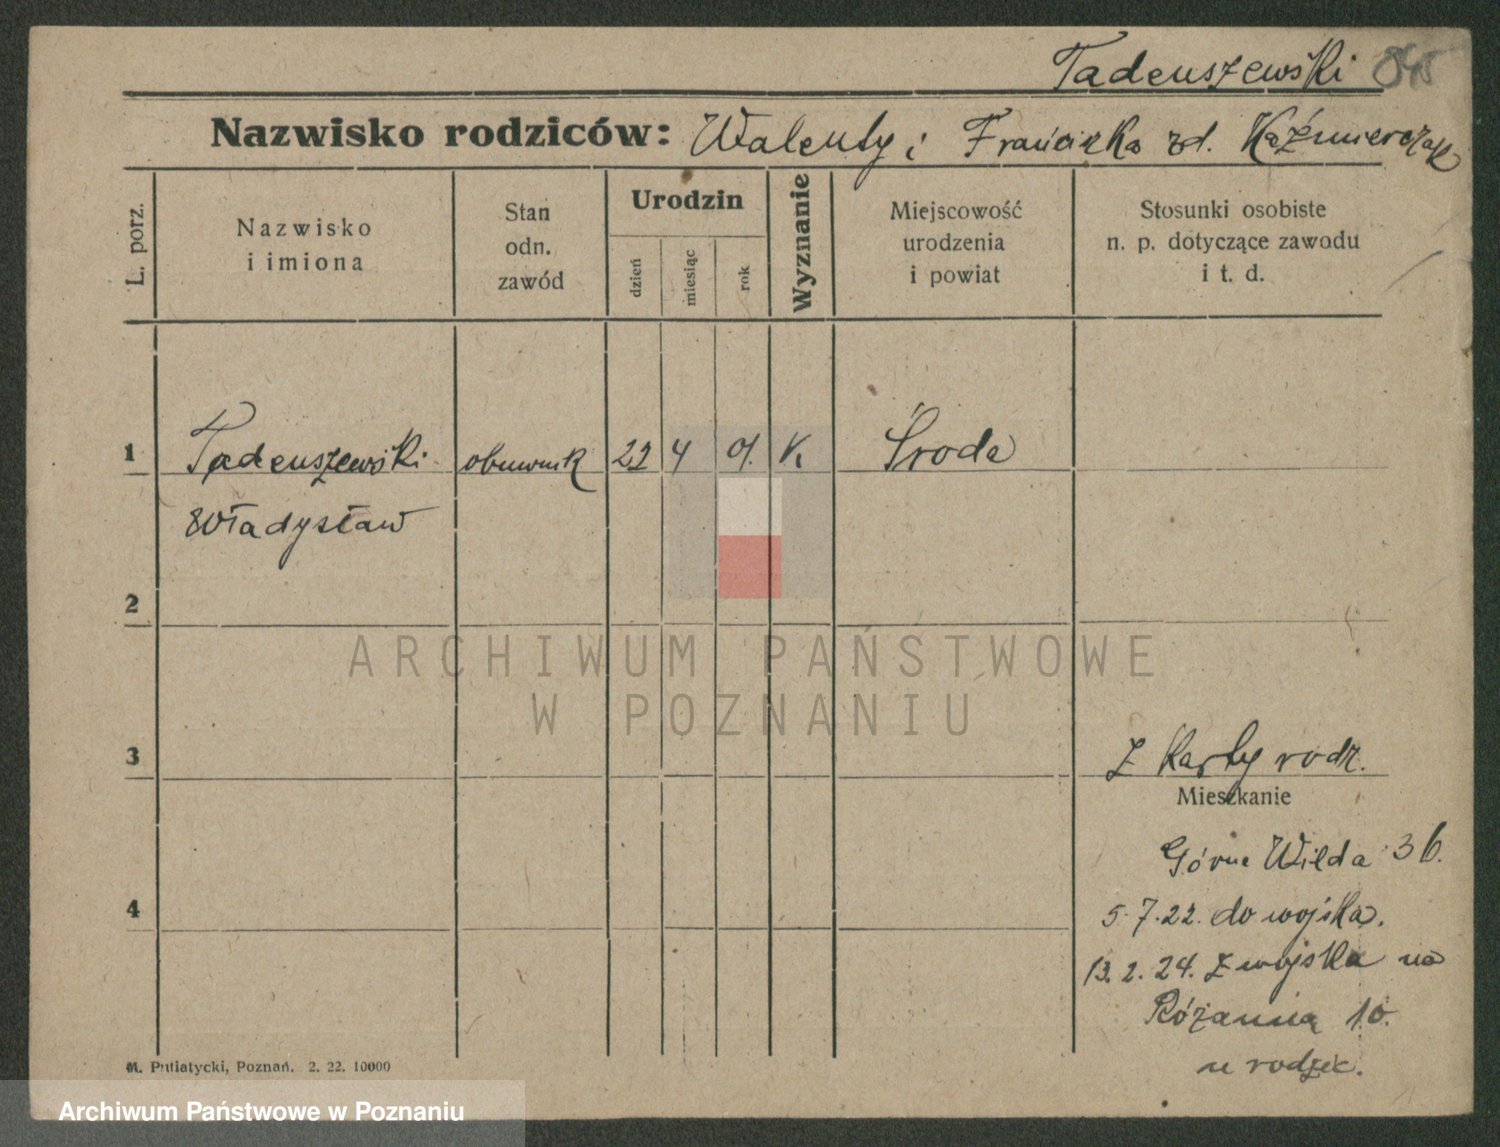 Tadeuszewski
Nazwisko rodziców: Walenty i Franciszka zd. Kaźmierczak
L. porz.
Nazwisko
i imiona
Stan
odn.
zawód
Urodzin
dzień
miesiąc
rok
Wyznanie
Miejscowość
urodzenia
i powiat
Stosunki osobiste
n. p. dotyczące zawodu
i t. d.
1 Tadeuszewski obuwnik 22 4 01. K. Środa
Władysław
2
ARCHIWUM PAŃSTWOWE
W POZNANIU
3
z Karty rodz.
Mieszkanie
Górna Wilda 36.
4
5.7.22. do wojska.
13.2.24. z wojska na
Różanną 10.
u rodzic.
M. Putiatycki, Poznań. 2. 22. 10000
Archiwum Państwowe w Poznaniu